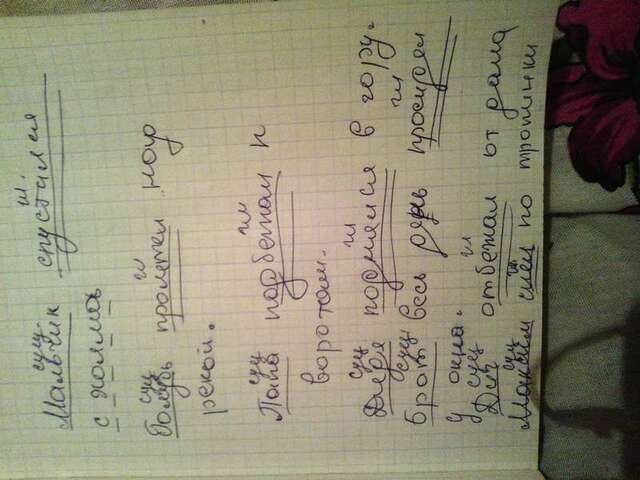 сущ. гл.
Мальчик спустился
с холма
сущ гл
Голубь пролетел над
рекой.
сущ гл
Папа подбежал к
воротам.
сущ гл
Дядя поднялся в гору.
сущ гл
Брат весь день просидел
у окна.
сущ гл
Дед отбежал от дома
сущ гл
Максим шёл по тропинки